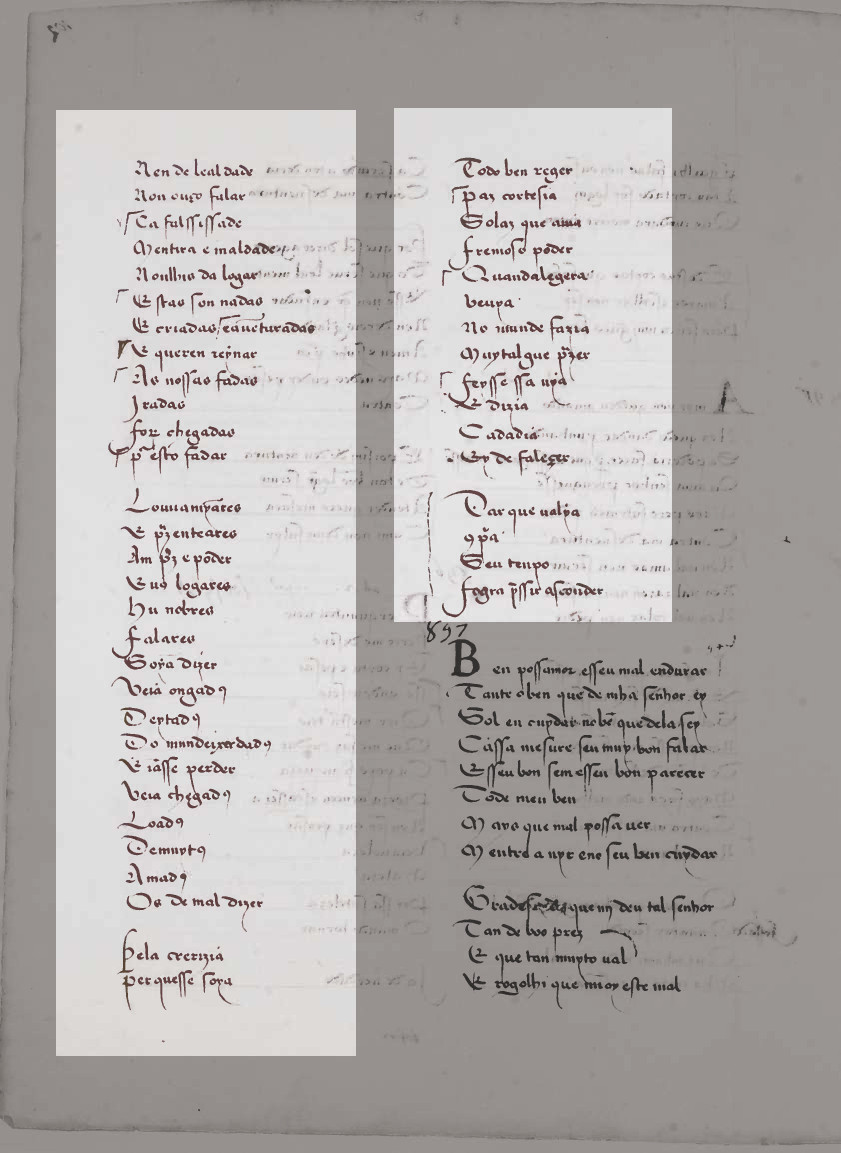 Nen de lealdade
Non ouço falar
Ca falssissade
Mentira e maldade
Noulhis da logar
E stas son nadas
E criadas eauēturadas
E queren reynar
As nossas fadas
Iradas
for chegadas
p̄ esto fadar
Louuamīares
E p̄zenteares
Am p̄z e poder
E us logares
Hu nobres
Falares
Soyā dizer
Veia ongad9
Deytad9
Do mundeixerdad9
E iāsse perder
Veia chegad9
Load9
Demuyt9
Amad9
Os de mal dizer
Pela crerizia
Perquesse soya
Todo ben reger
Paz cortesia
Solaz que auia
fremoso poder
Quandalegera
Veuya
No munde fazia
Muytalgue p̄zer
feysse ssā uya
E dizia
Cadadia
Ey de faleçer
Dar que ualya
9p̄a
Seu tenpo
fogra p̄ssir asconder
897
Ben possamor esseu mal endurar
Tant oben que de mha senhor ey
Sol en cuydar nobē que dela sey
Cassa mesure seu muy bon falar
Esseu bon sem esseu bon parecer
Tode meu ben
Mays que mal possa uer
Mentre a uyr eno seu ben cuydar
Gradesc que mj deu tal senhor
Tan de boo prez
E que tan muyto ual
E rogolhi que mi oy este mal